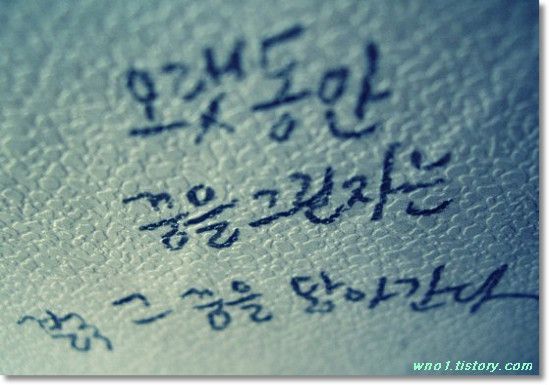 오랫동안
꿈을 그린자는
결국 그 꿈을 닮아간다
wno1.tistory.com